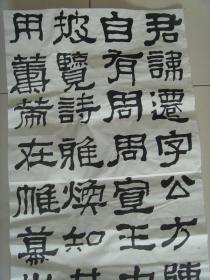 君諱遷字公方陳
自有周周宣王中
披覽詩雅煥知其
用籌策在帷幕